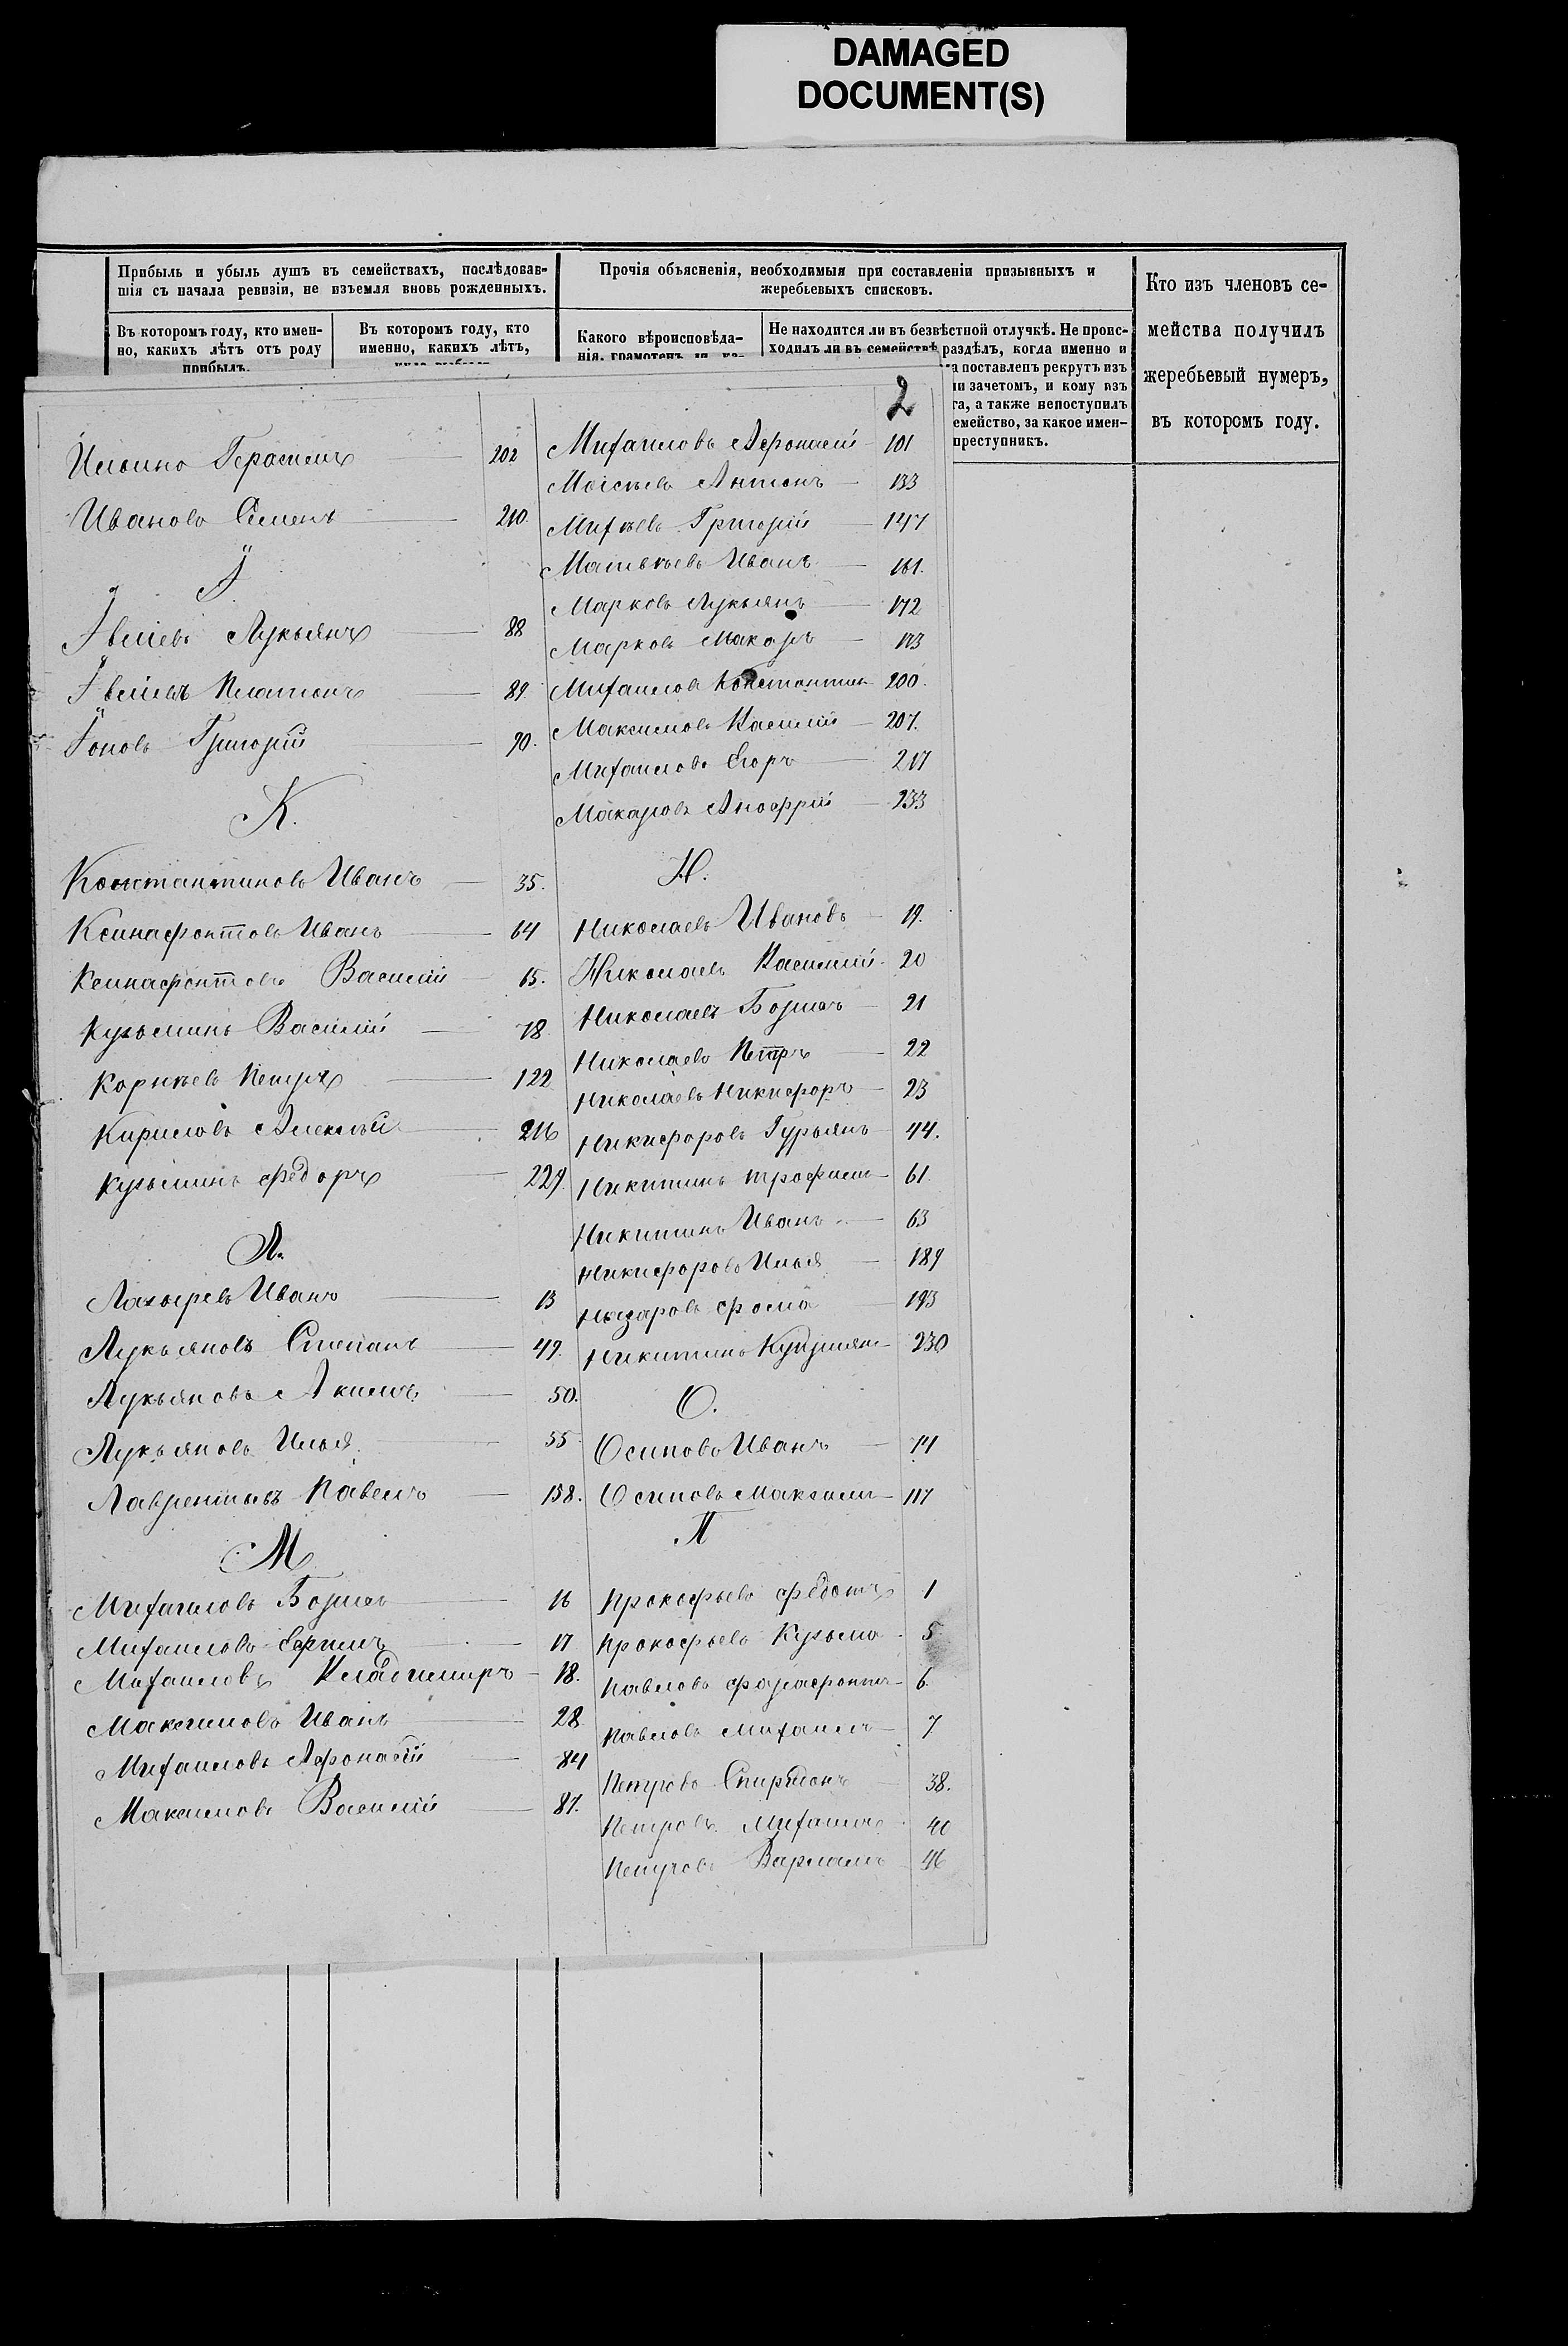 DAMAGED
DOCUMENT(S)
Прибыль и убыль душъ въ семействахъ, послѣдовав-
шія съ начала ревизіи, не изъемля вновь рожденныхъ.
Въ которомъ году, кто имен-
но, какихъ лѣтъ отъ роду
прибылъ.
Въ которомъ году, кто
именно, какихъ лѣтъ,
Прочія объясненія, необходимыя при составленіи призывныхъ и
жеребьевыхъ списковъ.
Какого вѣроисповѣда-
нія, грамотенъ ли,
Не находится ли въ безвѣстной отлучкѣ. Не проис-
ходилъ ли въ семействѣ раздѣлъ, когда именно и
поставленъ рекрутъ изъ
ли зачетомъ, и кому изъ
га, а также непоступилъ
емейство, за какое имен-
преступникъ.
Кто изъ членовъ се-
мейства получилъ
жеребьевый нумеръ,
въ которомъ году.
2
Ильинъ Герасимъ 202
Ивановъ Семенъ 210
І
Іевлевъ Лукьянъ 88
Іевлевъ Платонъ 89
Іоновъ Григорій 90.
К.
Константиновъ Иванъ 35.
Ксинафонтовъ Иванъ 64
Ксинафонтовъ Василій 65.
Кузьминъ Василій 78
Корнѣевъ Петръ 122
Кириловъ Алексѣй 216
Кузьминъ Федоръ 229.
Л.
Лазыревъ Иванъ 13
Лукьяновъ Степанъ 49.
Лукьяновъ Акимъ 50.
Лукьяновъ Илья 55
Лаврентьевъ Павелъ 158.
М
Михаиловъ Борисъ 16
Михаиловъ Ефимъ 17
Михаиловъ Владимиръ 18.
Максимовъ Иванъ 28
Михаиловъ Афонасій 84
Максимовъ Василій 87.
Михаиловъ Афонасій 101
Моісѣевъ Антонъ 133
Михѣевъ Григорій 147
Матвѣевъ Иванъ 161.
Марковъ Лукьянъ 172
Марковъ Макаръ 173
Михаиловъ Константинъ 200.
Максимовъ Василій 207.
Михаиловъ Егоръ 217
Макаровъ Анофрій 233
Н.
Николаевъ Ивановъ 19.
Николаевъ Василий 20
Николаевъ Борисъ 21
Николаевъ Петръ 22
Николаевъ Никифоръ 23
Никифоровъ Гурьянъ 44.
Никитинъ Трофимъ 61.
Никитинъ Иванъ 63
Никифоровъ Илья 189
Назаровъ Фома 193
Никитинъ Купріянъ 230
О.
Осиповъ Иванъ 74
Осиповъ Максимъ 117
П
Прокофьевъ Федотъ 1
Прокофьевъ Кузьма 5
Павловъ Фарафонтъ 6.
Павловъ Михаилъ 7
Петровъ Спиридонъ 38.
Петровъ Михаилъ 40
Петровъ Варламъ 46